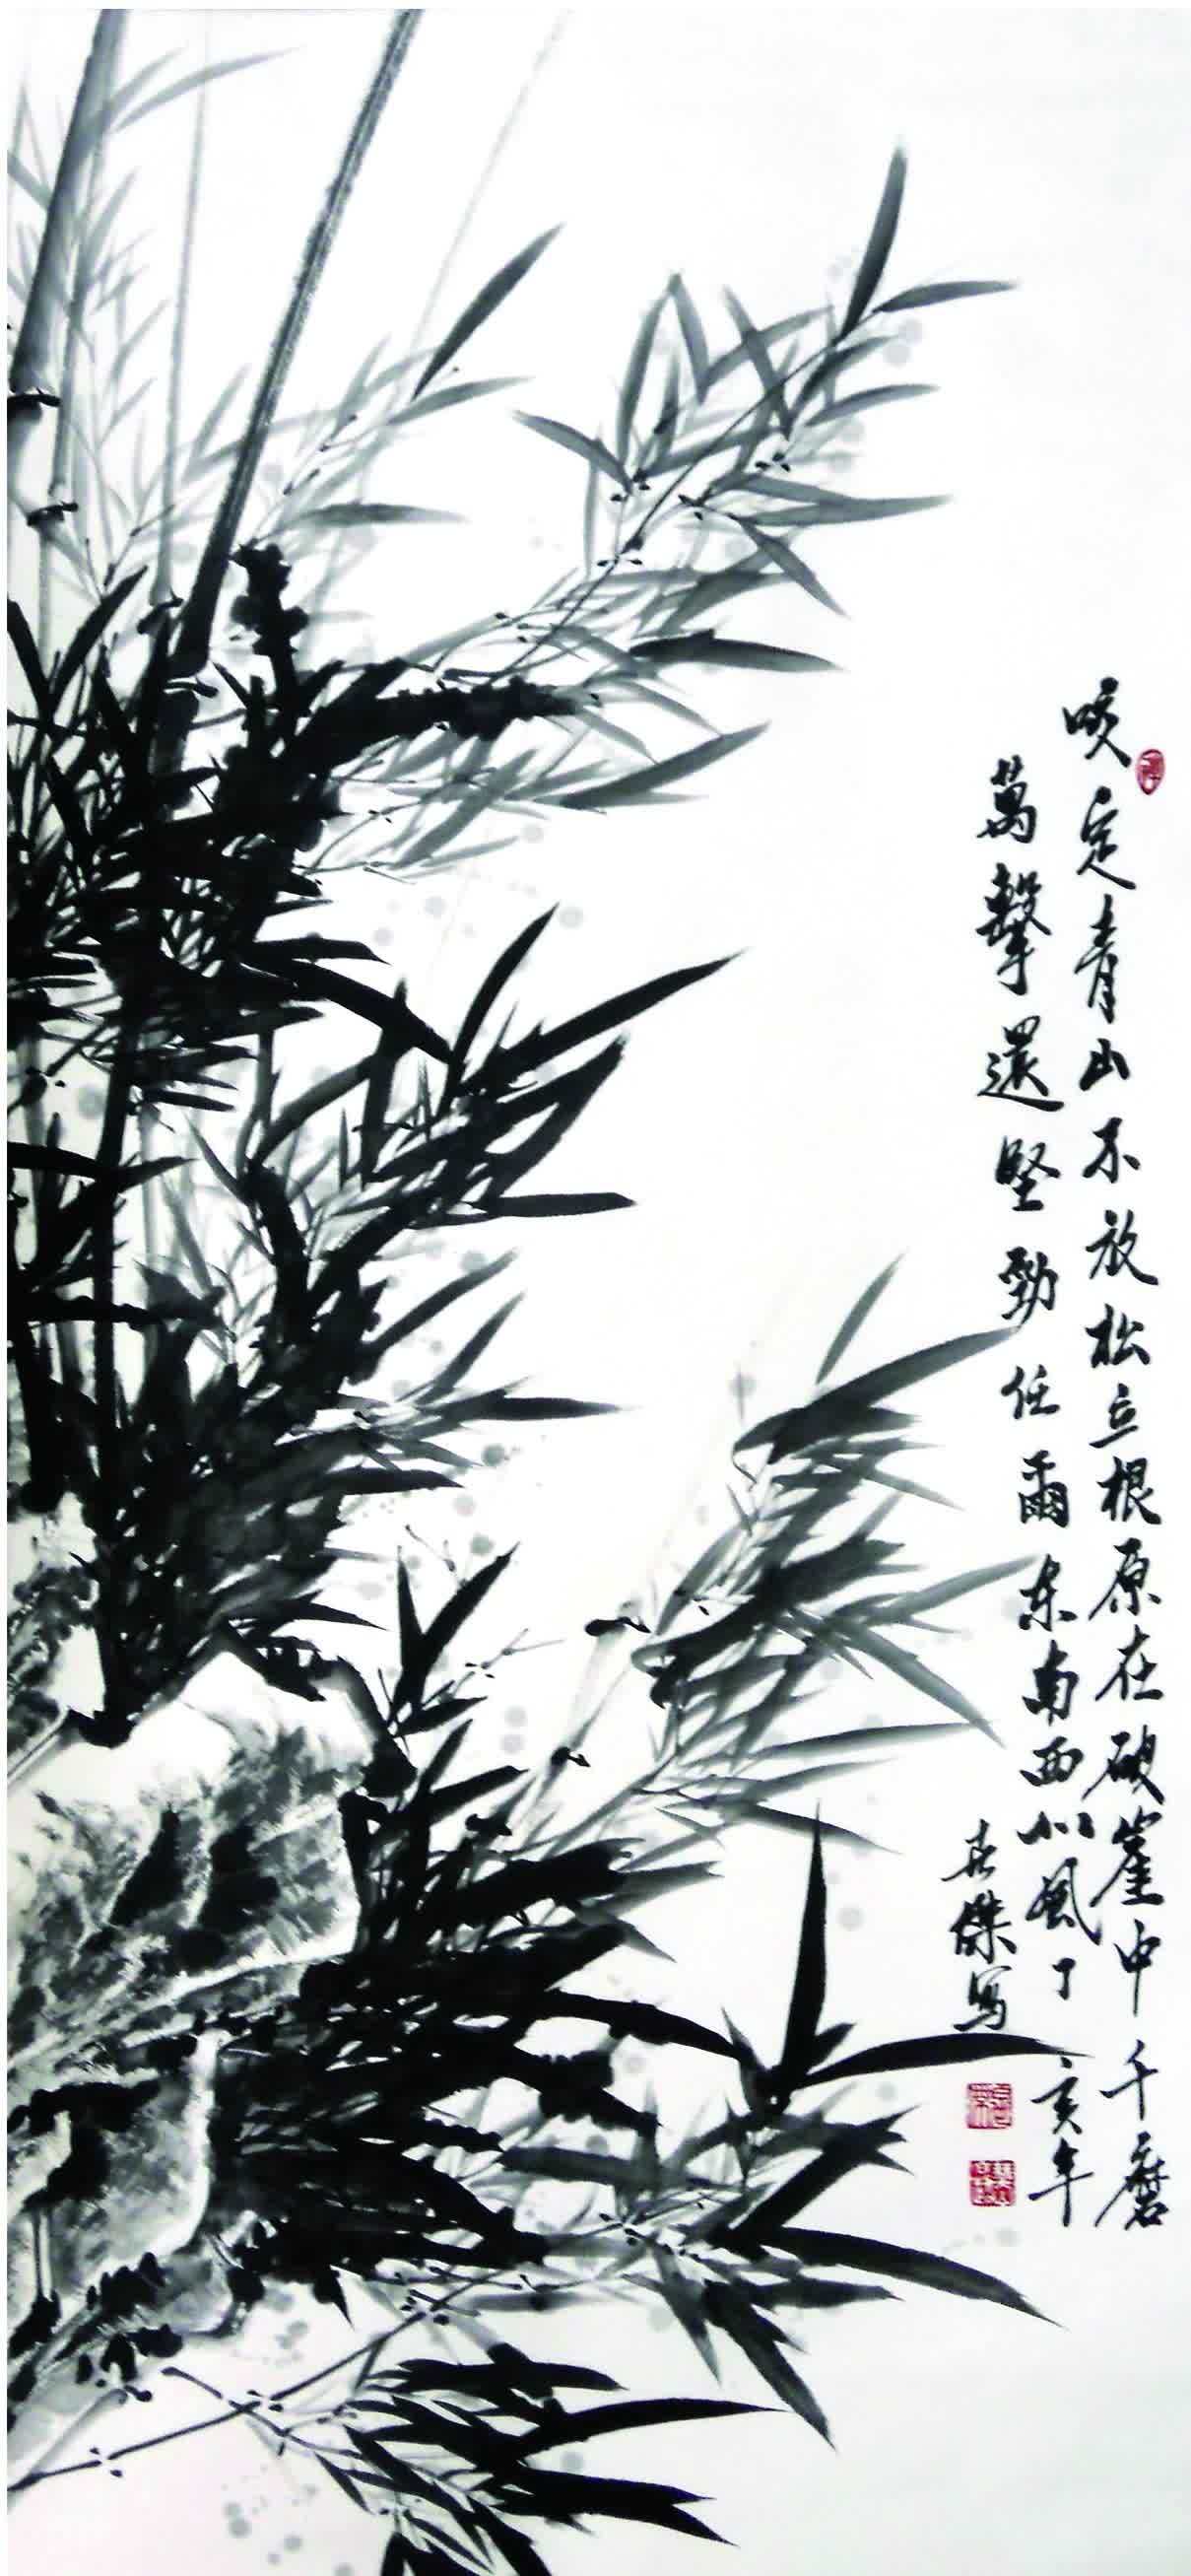 咬定青山不放松立根原在破崖中千磨
萬擊還堅勁任爾东南西北風丁亥年
傑写